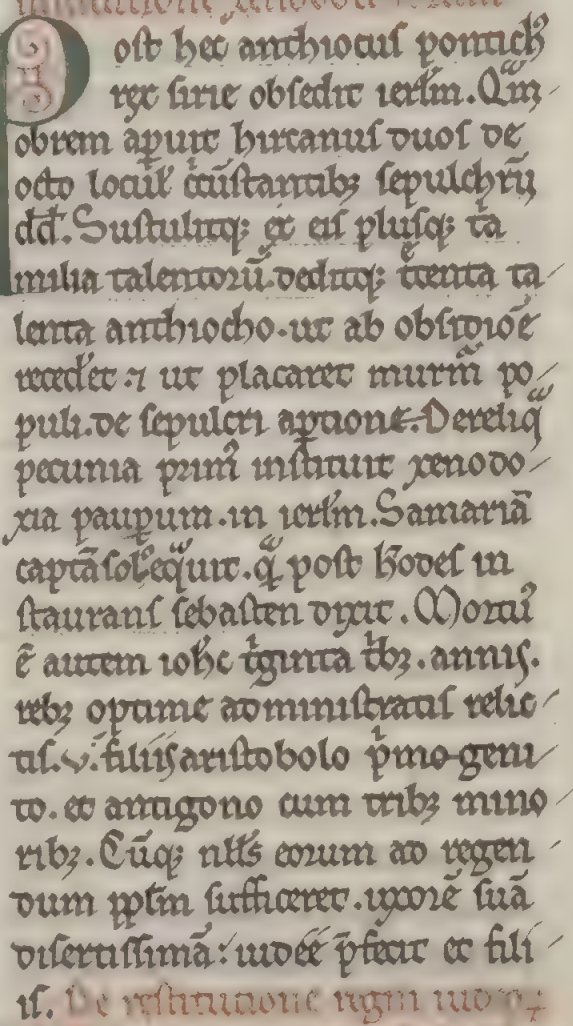 Post hec anthiocus pontich᷒
rex sirie obsedit ierl̅m. Qͣm
obrem aꝑuit hircanus duos de
octo loculꝭ cc̅ustantibꝫ sepulchru̅
dd̅. Sustulitqꝫ et eis plusqꝫ tͥa
milia talentoru̅. deditqꝫ tͥcenta ta
lenta anthiocho. ut ab obsidio̅e
recedet᷒. ⁊ ut placaret murm̅ po
puli. de sepulcri aꝑtione. Dereliqͣ
pecunia primu̅ instituit xenodo
xia pauꝑum. in ierl̅m. Samaria̅
capta̅ soloeqͣuit. qͣ̅ post h̅odes in
staurans sebasten dixit. Mortu᷒
e̅ autem ioh̅c tͥginta tͥbꝫ. annis.
rebꝫ optime administratis relic
tis. v. filiis aristobolo pͥmo geni
to. et antigono cum tribꝫ mino
ribꝫ. Cu̅qꝫ nll̅s eorum ad regen
dum ppl̅m sufficeret. uxore̅ sua̅
disertissima̅: iudee p̅fecit et fili
is. De restitutione regni